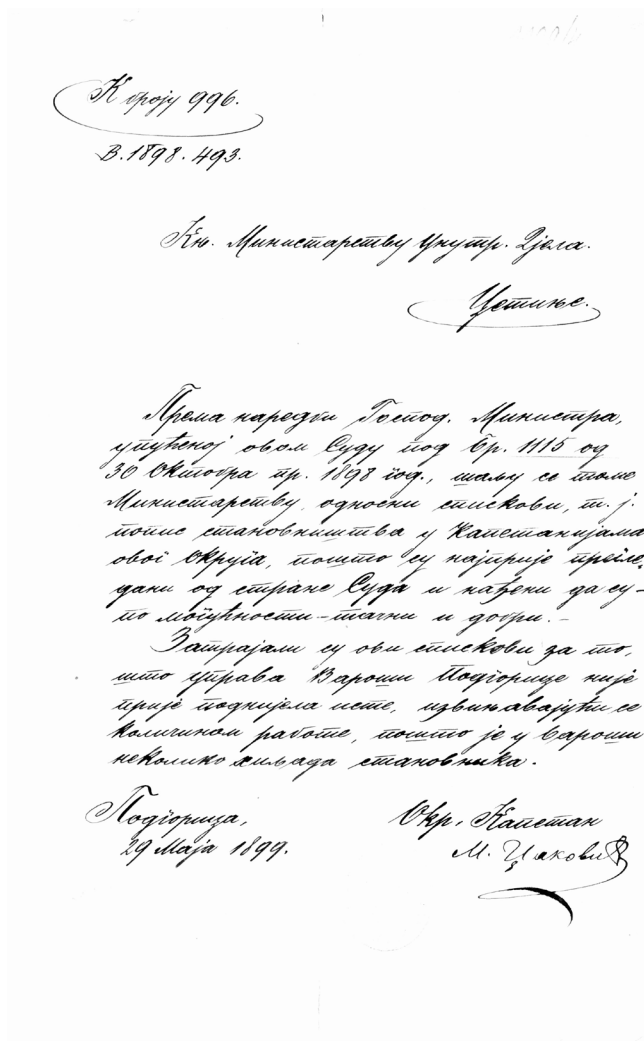 К броју 996.
В. 1898. 493.
Књ. Министарству Унутр. Дјела.
Цетиње.
Према наредби Господ. Министра,
упућеној овом Суду под Бр. 1115 од
30 Октобра пр. 1898 год., шаљу се томе
Министарству односни спискови, т. ј.
попис становништва у Капетанијама
овог Округа, пошто су најприје прегле-
дани од стране Суда и нађени да су-
по могућности-тачни и добри.-
Затрајали су ови спискови за то,
што управа Вароши Подгорице није
прије поднијела исте, извињавајући се
количином работе, пошто је у вароши
неколико хиљада становника.
Подгорица,
29 Маја 1899.
Окр. Капетан
М.